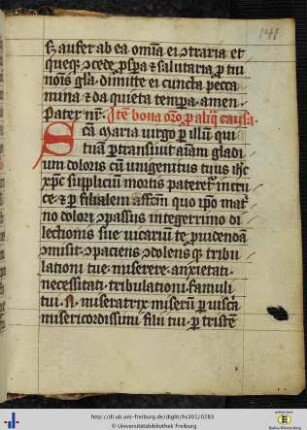 141
sz aufer ab ea om̄ia ei ꝯtraria et
queqȝ ꝯcede ꝓspa & salutaria ꝑ tui
noīs gl̄a dimitte ei cuncta pecca
mina & da quieta tempa amen
Pater nr̄. Itē bona or̄o ꝑ aliqͣ causa
Scā Maria virgo ꝑ illū qui
tuā ꝑtransiuit aīam gladi
um doloris cū unigenitus tuus ihc
xp̄c supplicium mortis pateret᷑ in cru
ce & ꝑ filialem affcm̄ quo ip̄o mat᷑
no dolori ꝯpassus integerrimo di
lectionis sue vicariū te ꝓuidendā
ꝯmisit ꝯpaciens ꝯdolensqȝ tribu
lationi tue miserere anxietati
necessitati tribulationi famuli
tui .N. miseratrix miserū ꝑ viscͣa
misericordissimi filii tui ꝑ tristē
http://dl.ub.uni-freiburg.de/diglit/hs301/0283
© Universitätsbibliothek Freiburg